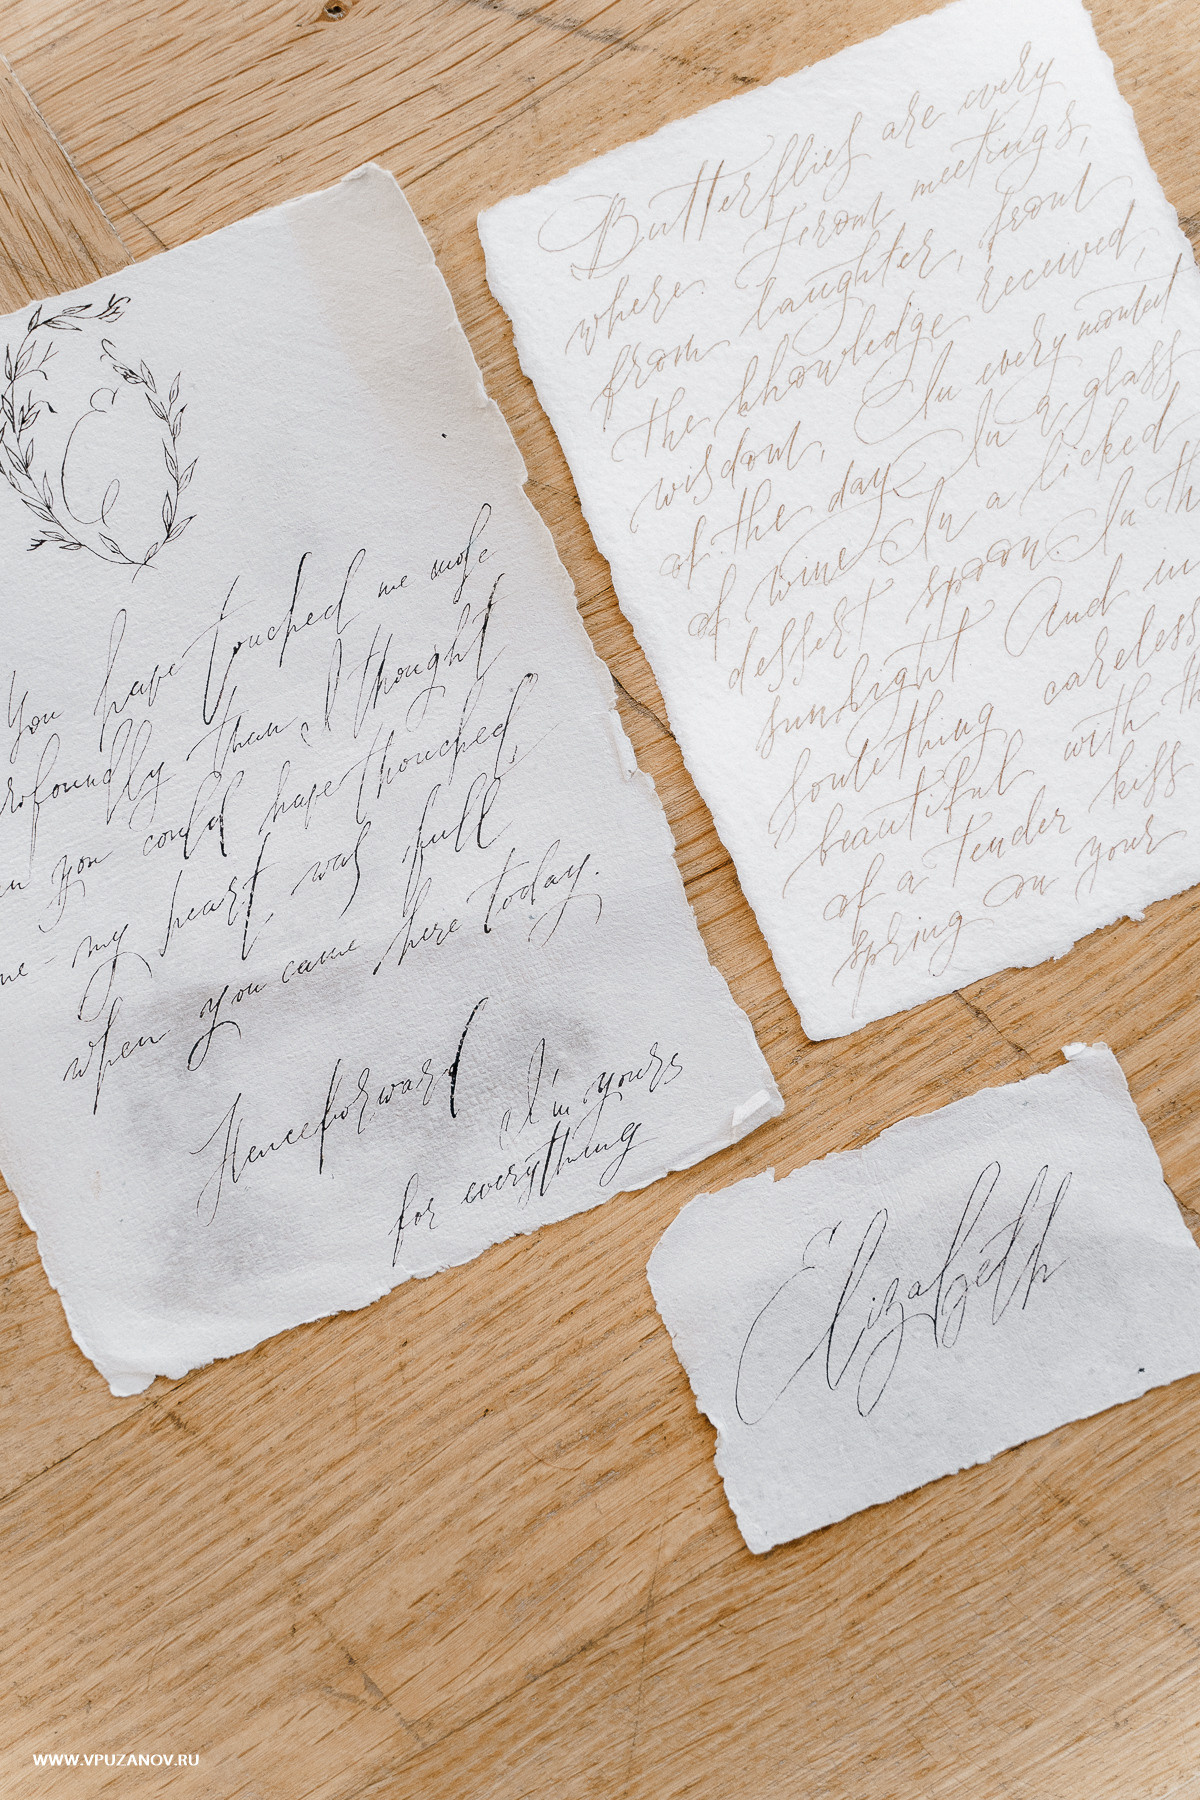 C
You have touched me more
profoundly than I thought
you could have thouched,
my heart was full
when you came here today.
Henceforward
I'm yours
for everything
Butterflies are every
where. From meetings,
from laughter, from
the knowledge received,
wisdom, In every moment
of the day. In a glass
of wine In a licked
dessert spoon. In th
sunlight And in
something careless
beautiful with th
of a tender kiss
spring on your
Elizabeth
WWW.VPUZANOV.RU